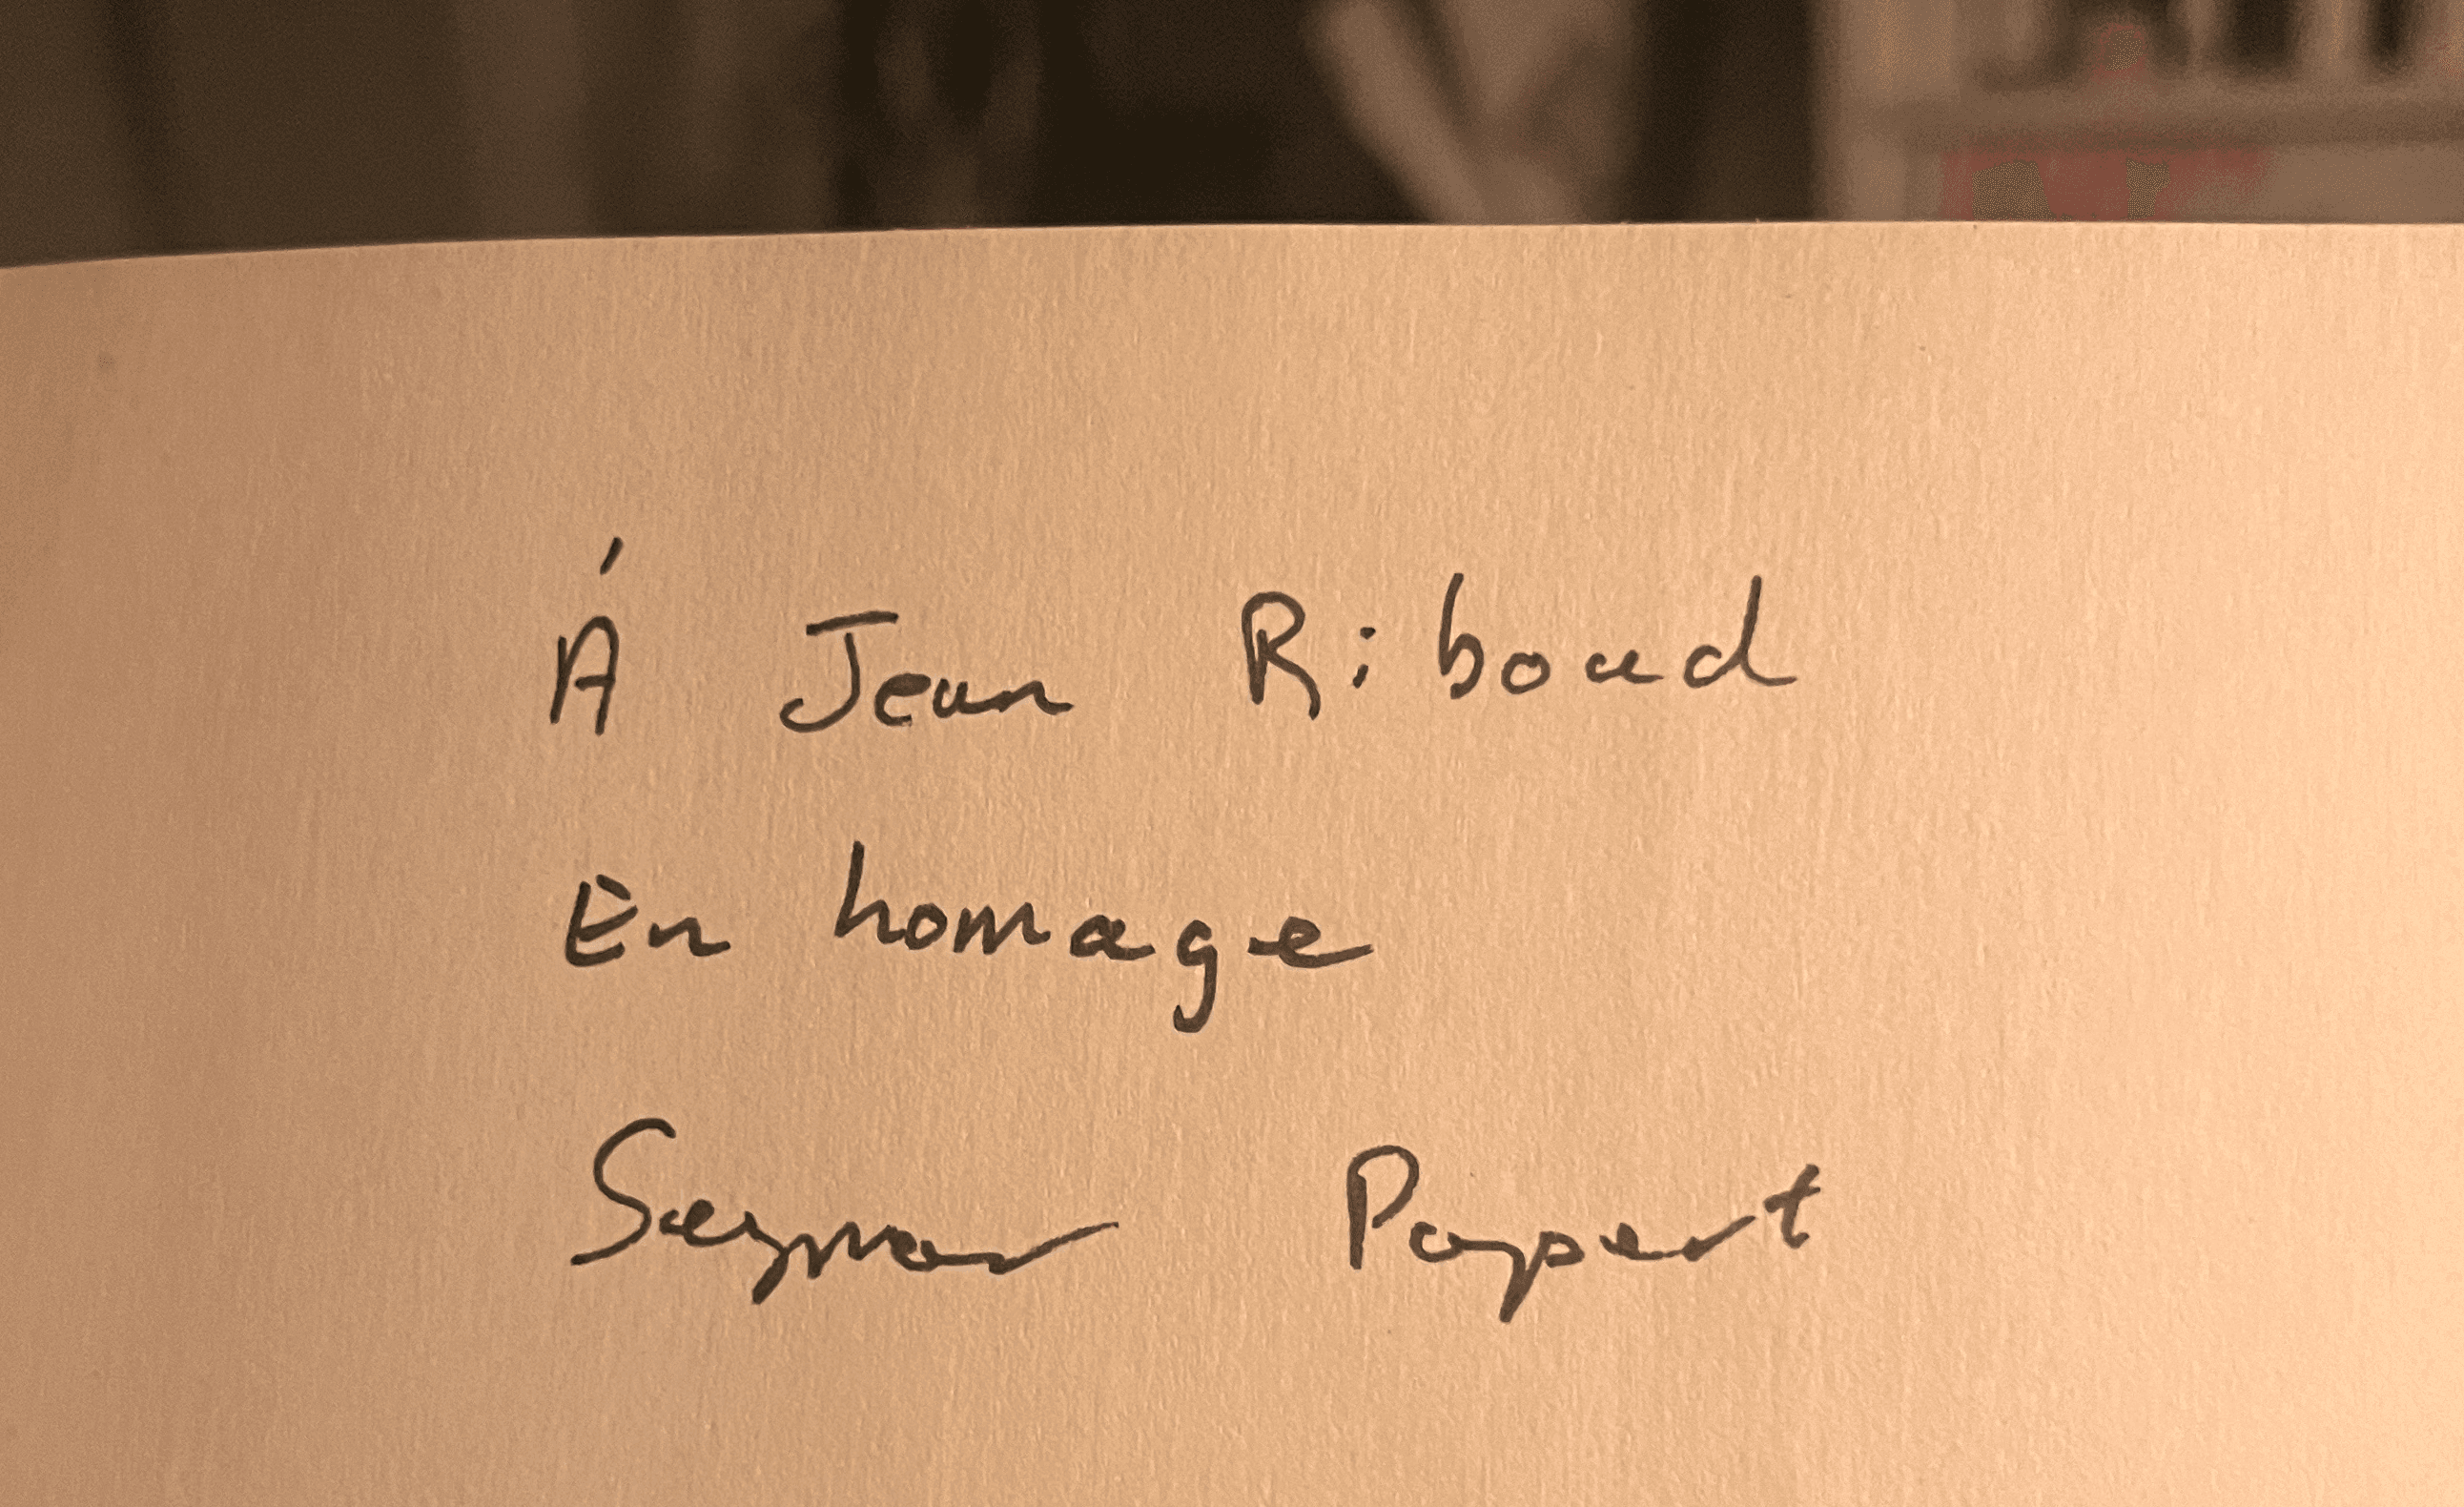 Á Jean Riboud
En homage
Seymour Papert